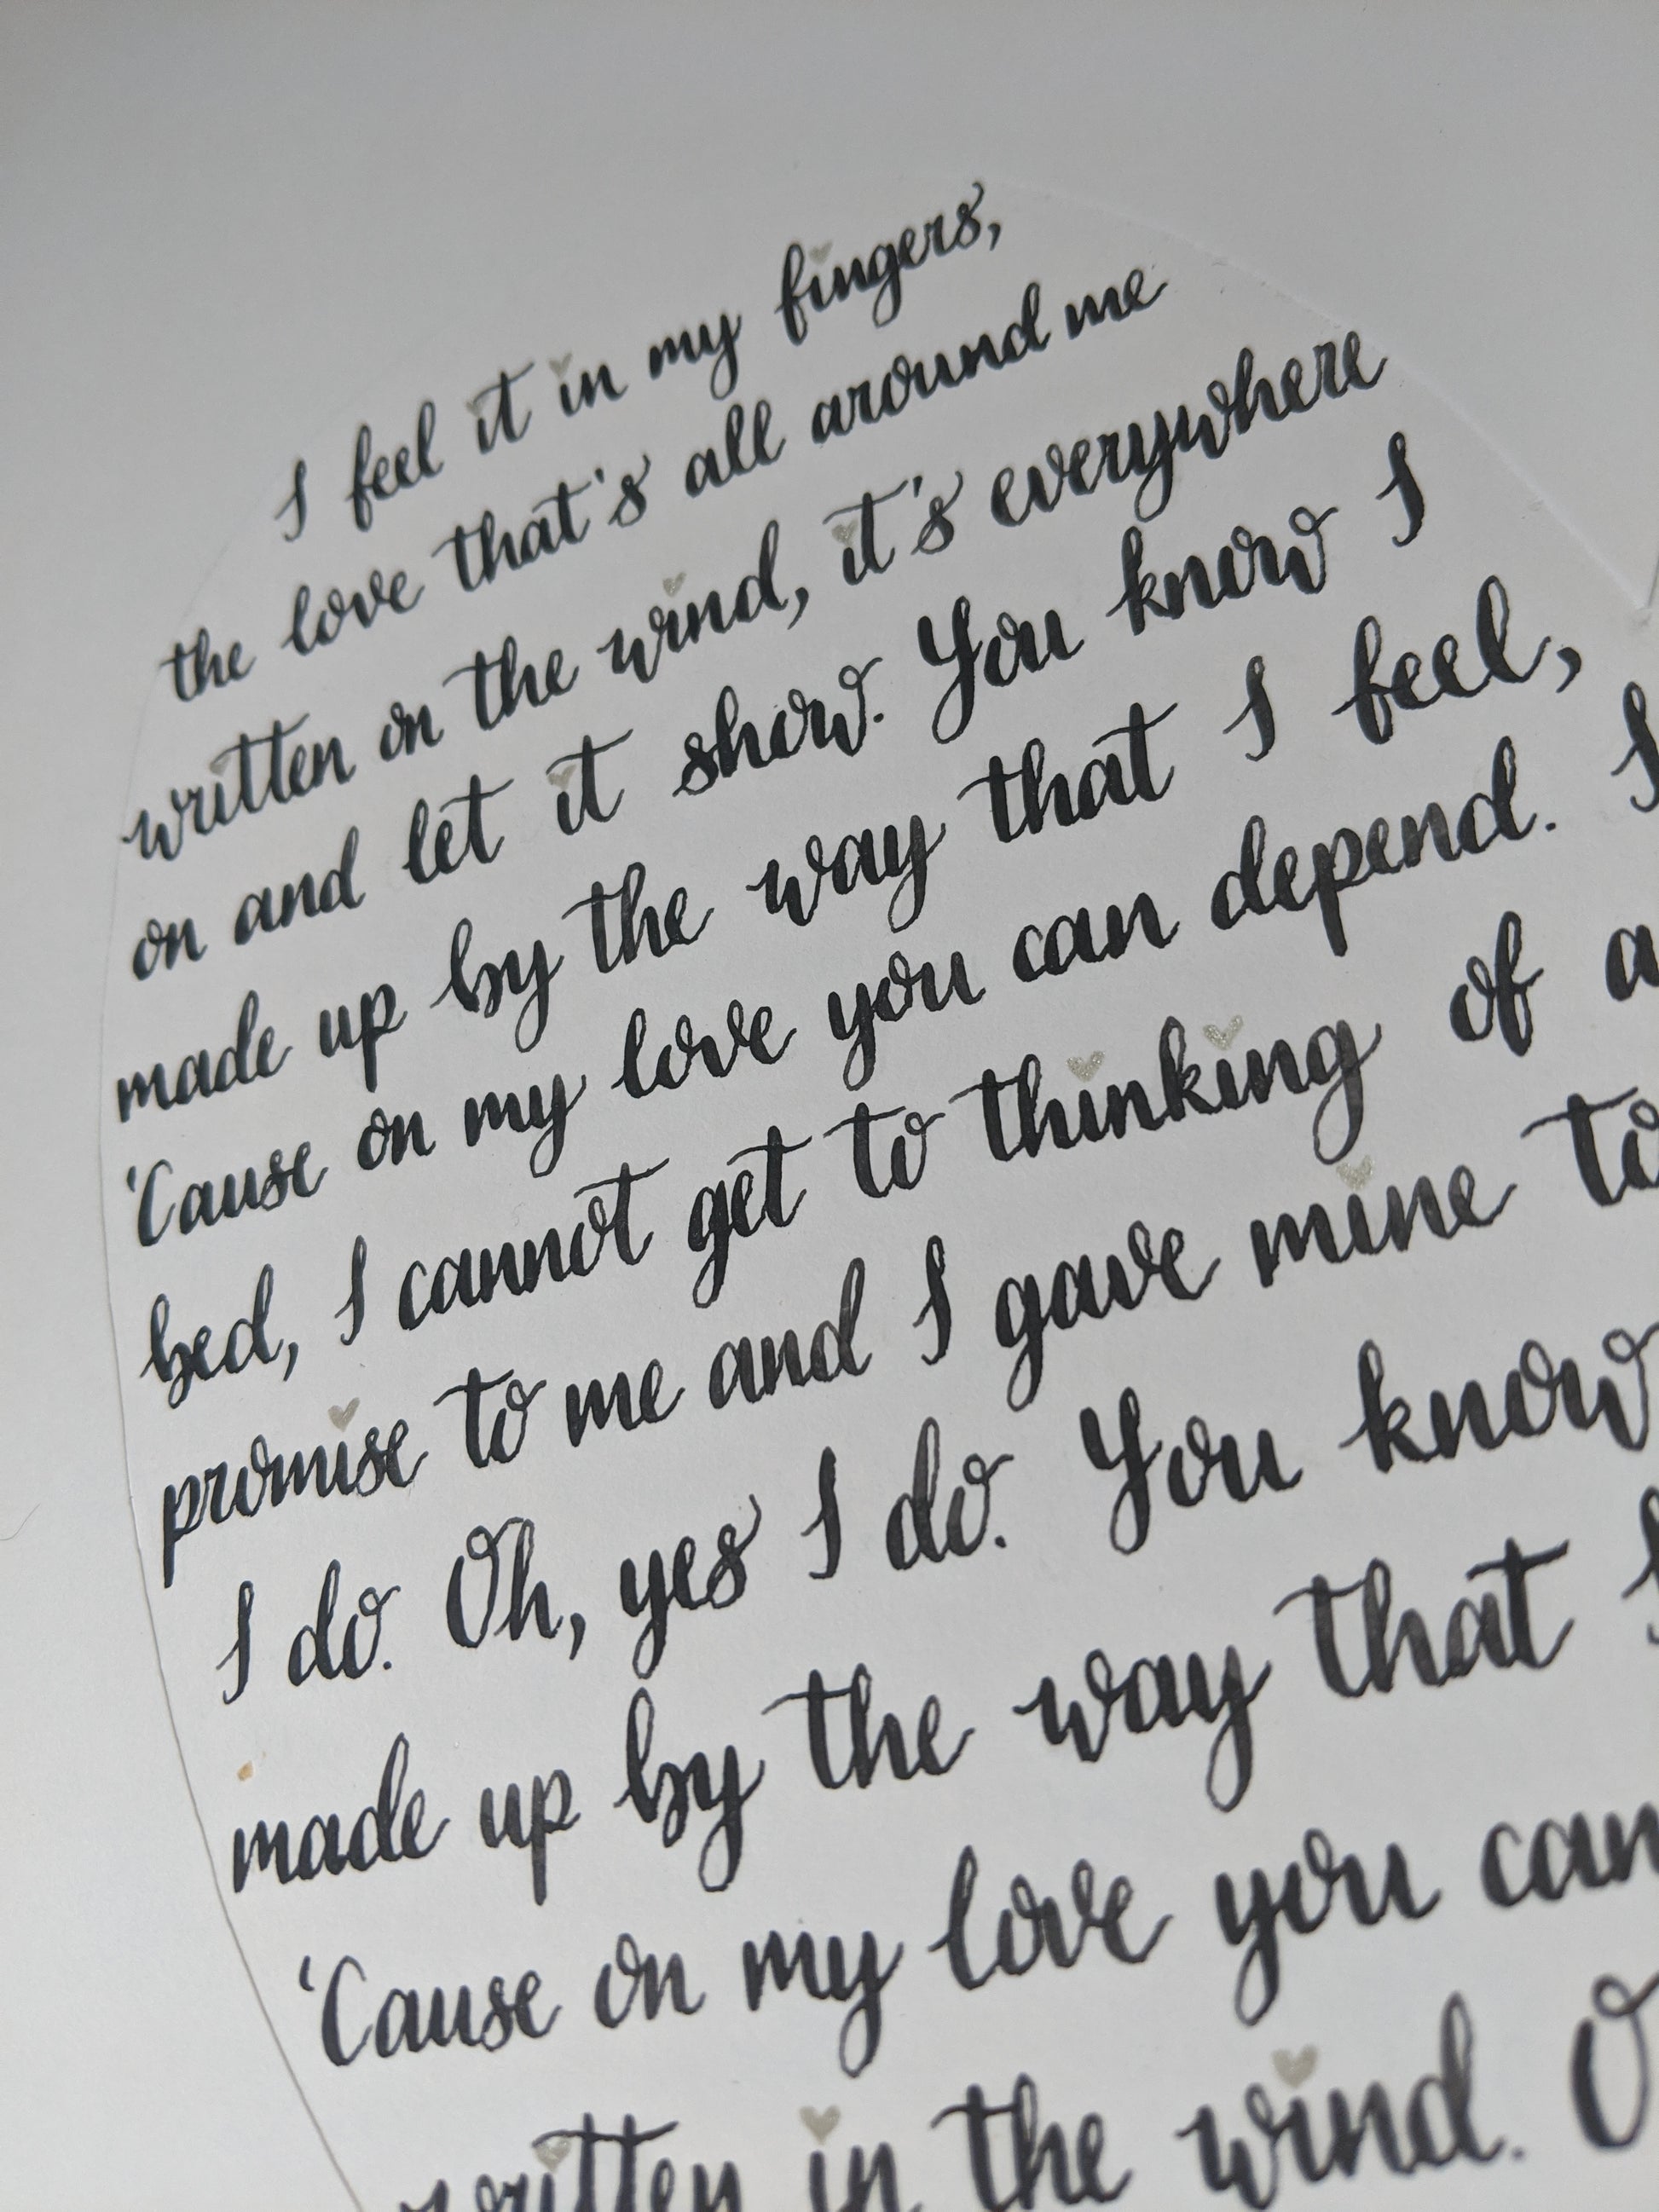 I feel it in my fingers,
the love that's all around me
written on the wind, it's everywhere
on and let it show. You know I
made up by the way that I feel,
'Cause on my love you can depend. I
bed, I cannot get to thinking of a
promise to me and I gave mine to
I do. Oh, yes I do. You know
made up by the way that I
'Cause on my love you can
written in the wind. O